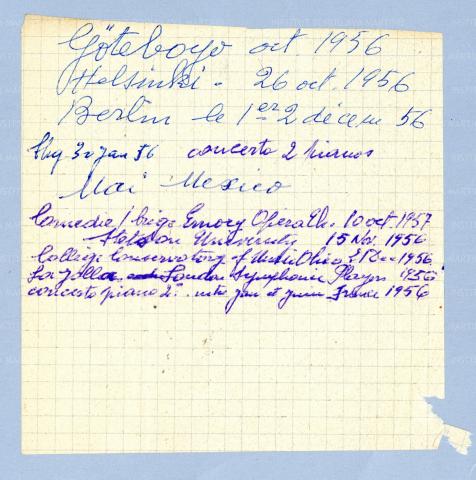 Göteborg oct 1956
Helsinki - 26 oct. 1956
Berlin le 1er 2 décem 56
30 Jan 56 concerto 2 pianos
Mai Mexico
Comedia / Emory Opera 10 oct. 1957
University 15 Nov. 1956
College Conservatory of Music Ohio Dec 1956
London Symphonic Players 1956
concerto piano 2 jan et juin France 1956